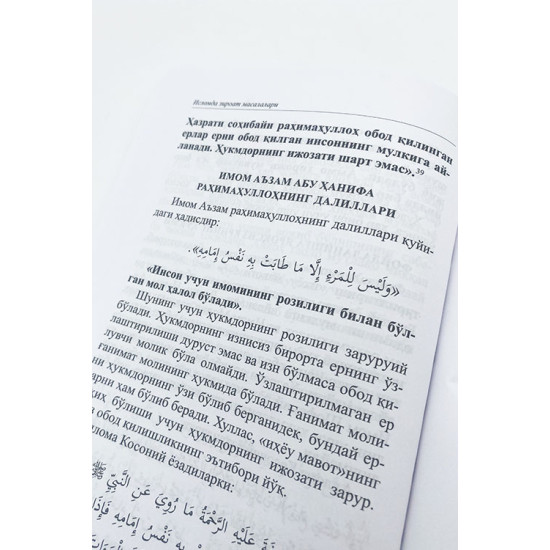 Исломда зироат масалалари
Ҳазрати соҳибайн раҳимаҳуллоҳ обод қилинган
ерлар ерни обод қилган инсоннинг мулкига ай-
ланади. Ҳукмдорнинг ижозати шарт эмас».³⁹
ИМОМ АЪЗАМ АБУ ҲАНИФА
РАҲИМАҲУЛЛОҲНИНГ ДАЛИЛЛАРИ
Имом Аъзам раҳимаҳуллоҳнинг далиллари қуйи-
даги ҳадисдир:
«وَلَيْسَ لِلْمَرْءِ إِلَّا مَا طَابَتْ بِهِ نَفْسُ إِمَامِهِ».
«Инсон учун имомининг розилиги билан бўл-
ган мол ҳалол бўлади».
Шунинг учун ҳукмдорнинг розилиги зарурий
бўлади. Ҳукмдорнинг изнисиз бирорта ернинг ўз-
лаштирилиши дуруст эмас ва изн бўлмаса обод қи-
лувчи молик бўла олмайди. Ўзлаштирилмаган ер
ғанимат молининг ҳукмида бўлади. Ғанимат моли-
ни ҳукмдорнинг ўзи бўлиб берганидек, бундай ер-
арни ҳам бўлиб беради. Хуллас, «иҳёу мавот»нинг
их бўлиши учун ҳукмдорнинг ижозати зарур.
а обод қилишликнинг эътибори йўқ.
лома Косоний ёзадиларки:
عَلَيْهِ الرَّحْمَةُ مَا رُوِيَ عَنِ النَّبِيِّ ﷺ
بِهِ نَفْسُ إِمَامِهِ فَإِذَا